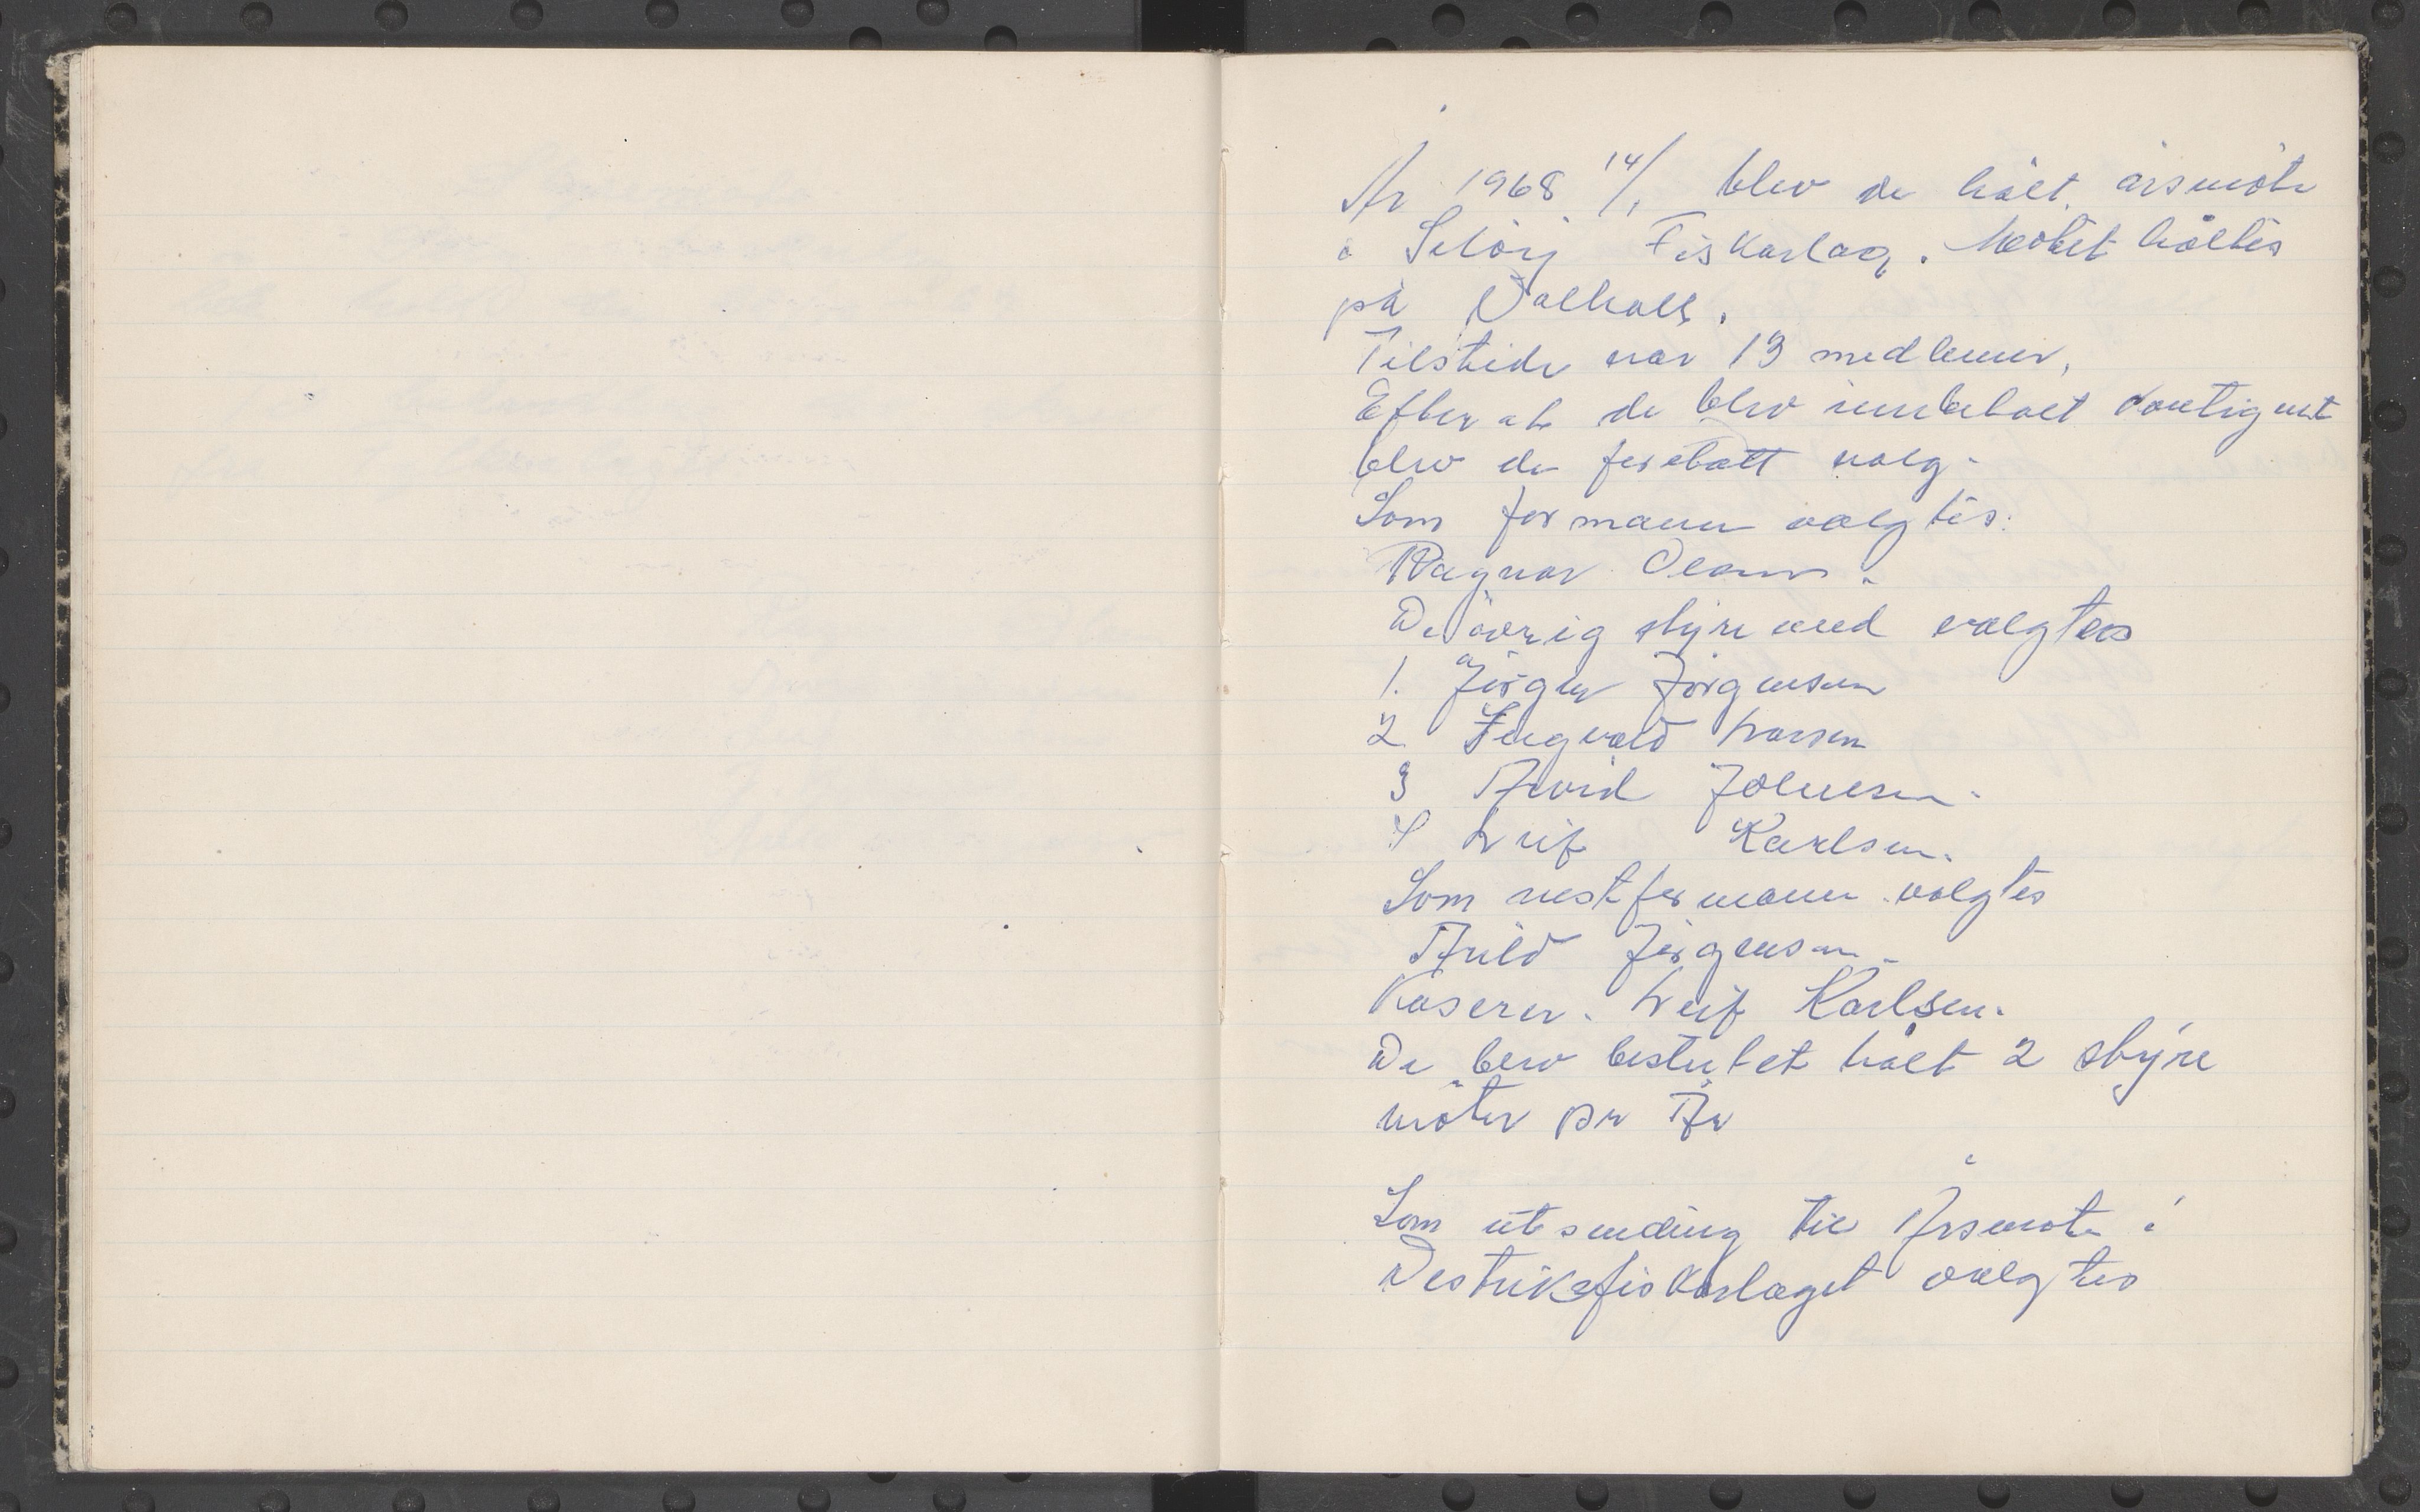 År 1968 14/1 blev de hålt årsmöte
i Selöy Fiskarlag. Mötet håltes
på Valhall.
Tilstede var 13 medlemer,
Efter at de blev innbetalt Kontigent
blev de foretatt valg.
Som formann valgtes:
Ragnar Olsen.
De övrig styre med valgtes
1. Jörgen Jörgensen
2 Ingvald Larsen
3 Arvid Johnsen.
4 Leif Karlsen.
Som nestformann valgtes
Arild Jörgensen.
Kaserer. Leif Karlsen.
De blev besluttet hålt 2 styre
möter pr År
Som utsending til Årsmöte i
Destriksfiskarlaget valgtes